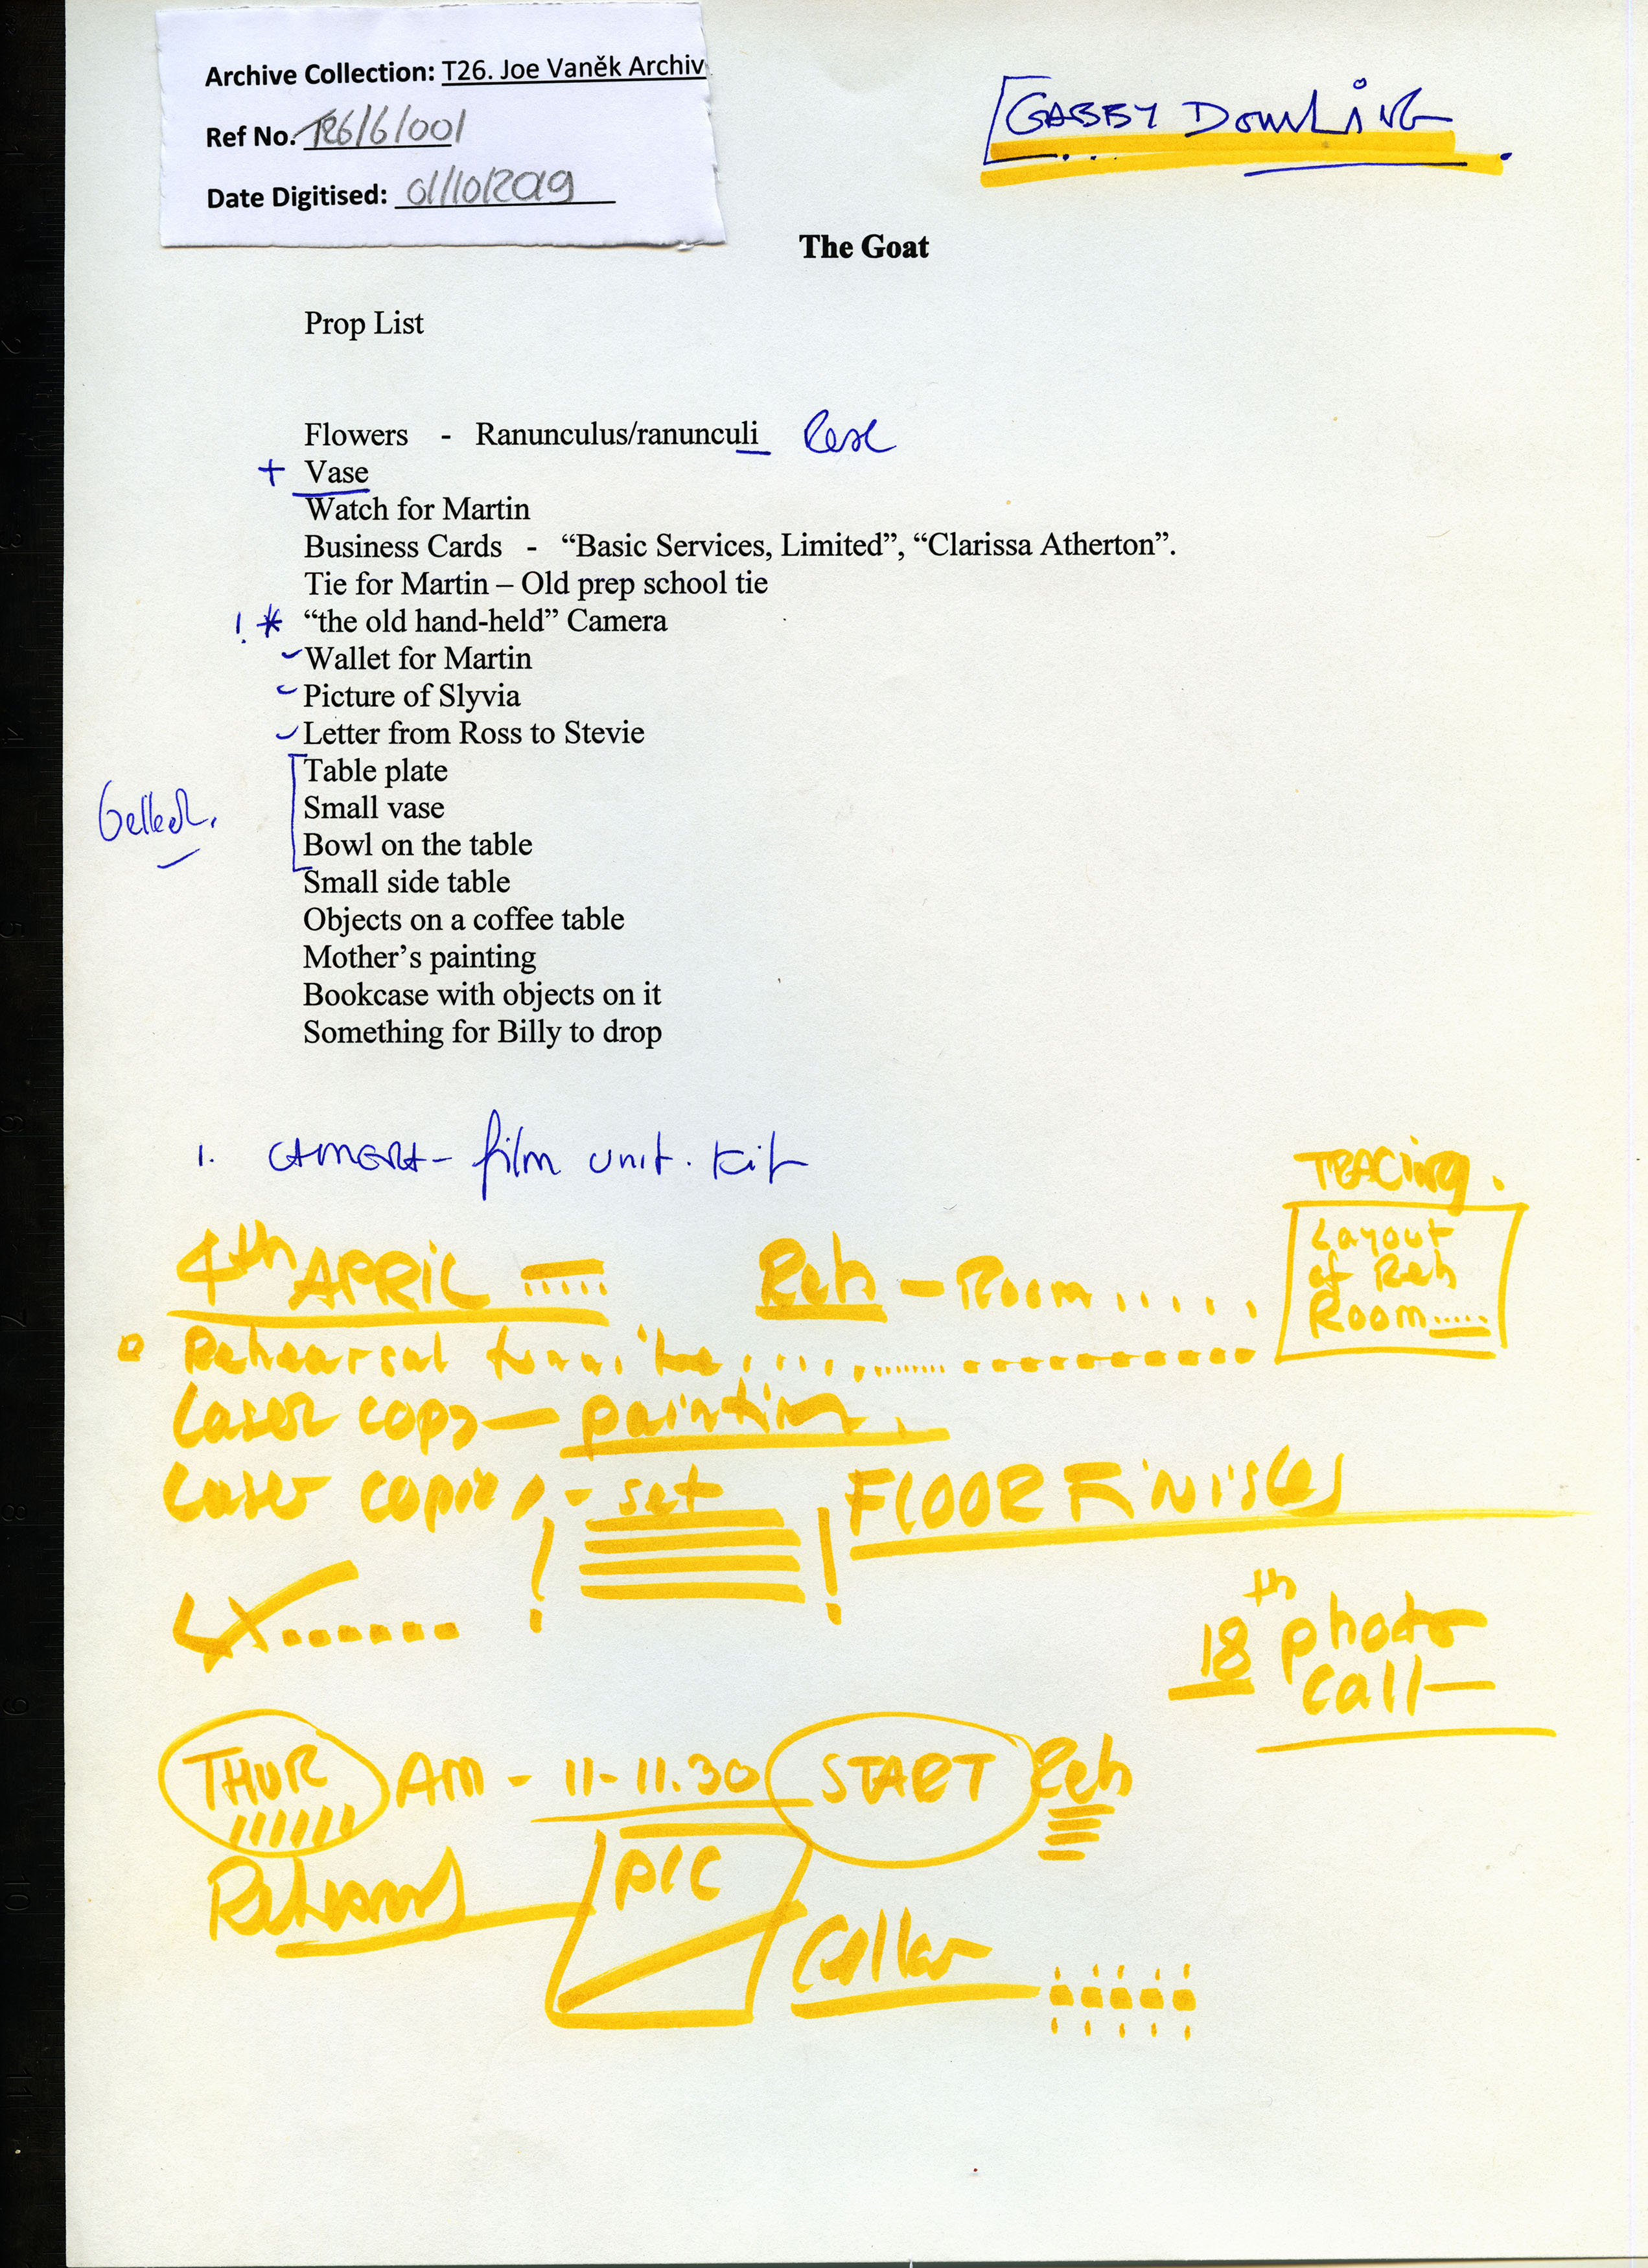 Archive Collection: T26. Joe Vaněk Archiv
Ref No. T26/6/001
Date Digitised: 01/10/2019
GABBY DOWLING
The Goat
Prop List
Flowers - Ranunculus/ranunculi
+ Vase
Watch for Martin
Business Cards - “Basic Services, Limited”, “Clarissa Atherton”.
Tie for Martin – Old prep school tie
! * “the old hand-held” Camera
Wallet for Martin
Picture of Slyvia
Letter from Ross to Stevie
Table plate
Small vase
Bowl on the table
Small side table
Objects on a coffee table
Mother’s painting
Bookcase with objects on it
Something for Billy to drop
1. CAMERA - film unit. kit
TRACING.
Layout
of Reh
Room.....
4th APRIL Reh - Room......
Rehearsal
Laser copy - painting.
Laser copies - set ! ! FLOOR FiNiSHES
18th photo
call -
THUR AM - 11-11.30 START Reh
PIC